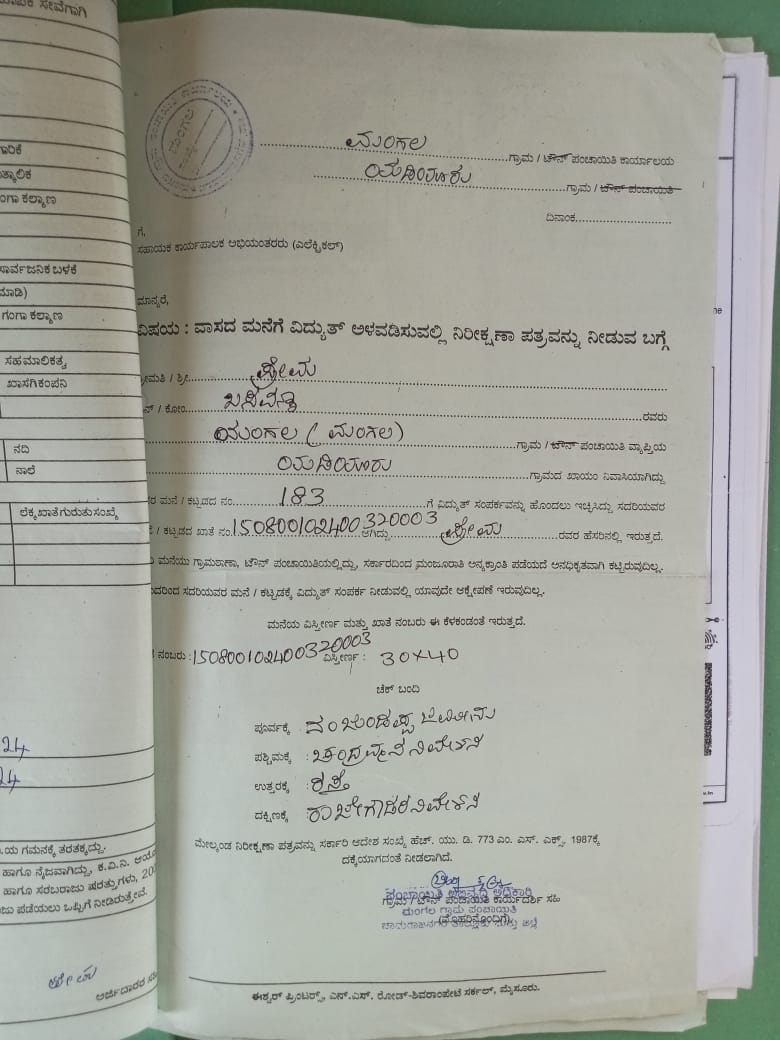 ಾಪಕ ಸೇವೆಗಾಗಿ
ಗಂಗಾ ಕಲ್ಯಾಣ
ಸಾರ್ವಜನಿಕ ಬಳಕೆ
ಮಾಡಿ)
ಗಂಗಾ ಕಲ್ಯಾಣ
ಸಹಮಾಲಿಕತ್ವ
ಖಾಸಗಿ ಕಂಪನಿ
ನದಿ
ನಾಲೆ
ಲೆಕ್ಕ ಖಾತೆ ಗುರುತು ಸಂಖ್ಯೆ
24
24
ಯ ಗಮನಕ್ಕೆ ತರತಕ್ಕದ್ದು.
ಹಾಗೂ ನೈಜವಾಗಿದ್ದು, ಕ.ವಿ.ನಿ. ಆಯೋ
ಹಾಗೂ ಸರಬರಾಜು ಷರತ್ತುಗಳು, 20
ಜು ಪಡೆಯಲು ಒಪ್ಪಿಗೆ ನೀಡಿರುತ್ತೇವೆ.
ಪ್ರೇಮ
ಅರ್ಜಿದಾರರ ಸಹಿ
ಮಂಗಲ
ಮಂಗಲ ಗ್ರಾಮ / ಟೌನ್ ಪಂಚಾಯಿತಿ ಕಾರ್ಯಾಲಯ
ಯಡಿಯೂರು ಗ್ರಾಮ / ಟೌನ್ ಪಂಚಾಯಿತಿ
ದಿನಾಂಕ
ಗೆ,
ಸಹಾಯಕ ಕಾರ್ಯಪಾಲಕ ಅಭಿಯಂತರರು (ಎಲೆಕ್ಟ್ರಿಕಲ್)
ಮಾನ್ಯರೆ,
ವಿಷಯ : ವಾಸದ ಮನೆಗೆ ವಿದ್ಯುತ್ ಅಳವಡಿಸುವಲ್ಲಿ ನಿರೀಕ್ಷಣಾ ಪತ್ರವನ್ನು ನೀಡುವ ಬಗ್ಗೆ
ಶ್ರೀಮತಿ / ಶ್ರೀ ಪ್ರೇಮ
ನ್ / ಕೋಂ ಬಸವಣ್ಣ ರವರು
ಮಂಗಲ (ಮಂಗಲ) ಗ್ರಾಮ / ಟೌನ್ ಪಂಚಾಯಿತಿ ವ್ಯಾಪ್ತಿಯ
ಯಡಿಯೂರು ಗ್ರಾಮದ ಖಾಯಂ ನಿವಾಸಿಯಾಗಿದ್ದು
ರ ಮನೆ / ಕಟ್ಟಡದ ನಂ. 183 ಗೆ ವಿದ್ಯುತ್ ಸಂಪರ್ಕವನ್ನು ಹೊಂದಲು ಇಚ್ಚಿಸಿದ್ದು ಸದರಿಯವರ
/ ಕಟ್ಟಡದ ಖಾತೆ ನಂ. 150800102400320003 ಆಗಿದ್ದು ಪ್ರೇಮ ರವರ ಹೆಸರಿನಲ್ಲಿ ಇರುತ್ತದೆ.
ಮನೆಯು ಗ್ರಾಮಠಾಣಾ, ಟೌನ್ ಪಂಚಾಯಿತಿಯಲ್ಲಿದ್ದು, ಸರ್ಕಾರದಿಂದ ಮಂಜೂರಾತಿ ಅನ್ಯಕ್ರಾಂತಿ ಪಡೆಯದೆ ಅನಧಿಕೃತವಾಗಿ ಕಟ್ಟಿರುವುದಿಲ್ಲ.
ದರಿಂದ ಸದರಿಯವರ ಮನೆ / ಕಟ್ಟಡಕ್ಕೆ ವಿದ್ಯುತ್ ಸಂಪರ್ಕ ನೀಡುವಲ್ಲಿ ಯಾವುದೇ ಆಕ್ಷೇಪಣೆ ಇರುವುದಿಲ್ಲ.
ಮನೆಯ ವಿಸ್ತೀರ್ಣ ಮತ್ತು ಖಾತೆ ನಂಬರು ಈ ಕೆಳಕಂಡಂತೆ ಇರುತ್ತದೆ.
ನಂಬರು : 150800102400320003 ವಿಸ್ತೀರ್ಣ : 30×40
ಚೆಕ್ ಬಂದಿ
ಪೂರ್ವಕ್ಕೆ
ಪಶ್ಚಿಮಕ್ಕೆ : ನಿವೇಶನ
ಉತ್ತರಕ್ಕೆ : ರಸ್ತೆ
ದಕ್ಷಿಣಕ್ಕೆ : ರಾಜೇಗೌಡರ ನಿವೇಶನ
ಮೇಲ್ಕಂಡ ನಿರೀಕ್ಷಣಾ ಪತ್ರವನ್ನು ಸರ್ಕಾರಿ ಆದೇಶ ಸಂಖ್ಯೆ ಹೆಚ್. ಯು. ಡಿ. 773 ಎಂ. ಎಸ್. ಎಕ್ಸ್. 1987ಕ್ಕೆ
ದಕ್ಕೆಯಾಗದಂತೆ ನೀಡಲಾಗಿದೆ.
ಪಂಚಾಯಿತಿ ಅಭಿವೃದ್ಧಿ ಅಧಿಕಾರಿ
ಗ್ರಾಮ / ಟೌನ್ ಪಂಚಾಯಿತಿ ಕಾರ್ಯದರ್ಶಿ ಸಹಿ
ಮಂಗಲ ಗ್ರಾಮ ಪಂಚಾಯಿತಿ
(ಮೊಹರಿನೊಂದಿಗೆ)
ಈಶ್ವರ್ ಪ್ರಿಂಟರ್ಸ್, ಎನ್.ಎಸ್. ರೋಡ್-ಶಿವರಾಂಪೇಟೆ ಸರ್ಕಲ್, ಮೈಸೂರು.